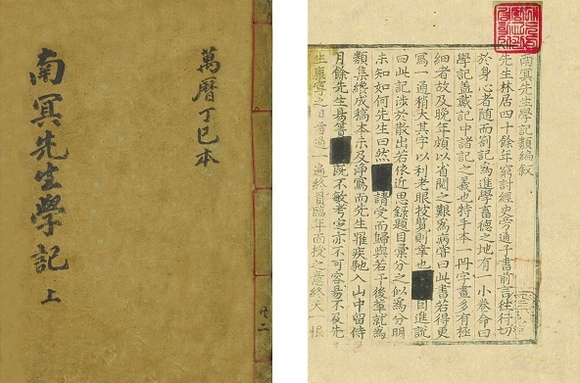 萬曆丁巳本
南冥先生學記 上
南冥先生學記類編叙
先生林居四十餘年窮討經史旁通子書前言往行切
於身心者隨而劄記為進學畜德之地有一小卷命曰
學記蓋戴記中諸記之義也特手本一冊字畫多有極
細者故及晚年頗以省閱之艱為病嘗曰此書若得更
寫一通稍大其字以利老眼披覽則幸也 自進說
曰此記涉於散出若依近思錄題目彙分之似為分明
未知如何先生曰然 請受而歸與若干後輩就為
類集終成稿本未及淨寫而先生罹疾馳入山中留侍
月餘先生易簀 既不敏考定亦不可容易不及先
生康寧之日看過一遍終負臨年面授之意終天一恨